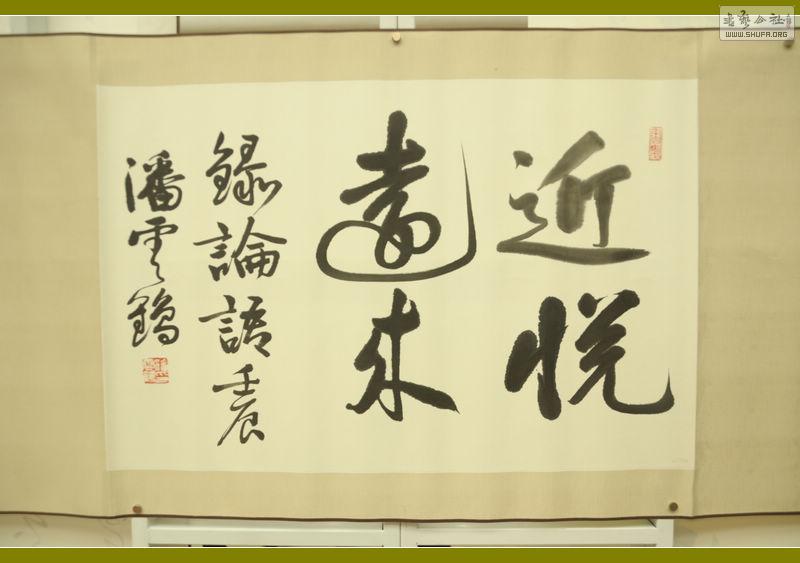 近悦
遠来
録論語壬辰
潘雲鶴
書藝公社
WWW.SHUFA.ORG